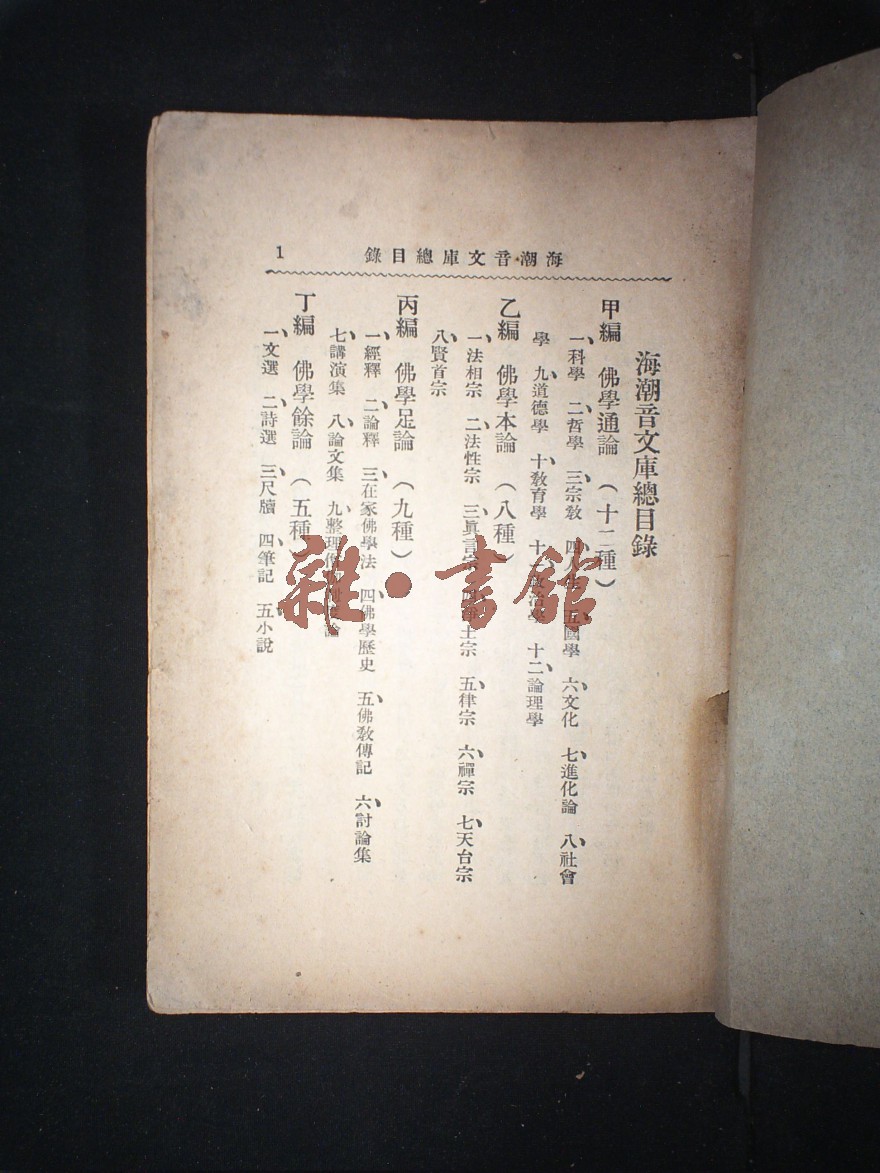 海潮音文庫總目錄 1
海潮音文庫總目錄
甲編 佛學通論（十二種）
一、科學 二、哲學 三、宗教 四、人生 五、國學 六、文化 七、進化論 八、社會
學 九、道德學 十、教育學 十一、政治學 十二、論理學
乙編 佛學本論（八種）
一、法相宗 二、法性宗 三、眞言宗 四、淨土宗 五、律宗 六、禪宗 七、天台宗
八、賢首宗
丙編 佛學足論（九種）
一、經釋 二、論釋 三、在家佛學法 四、佛學歷史 五、佛教傳記 六、討論集
七、講演集 八、論文集 九、整理僧 論
丁編 佛學餘論（五種）
一、文選 二、詩選 三、尺牘 四、筆記 五、小說
雜·書館